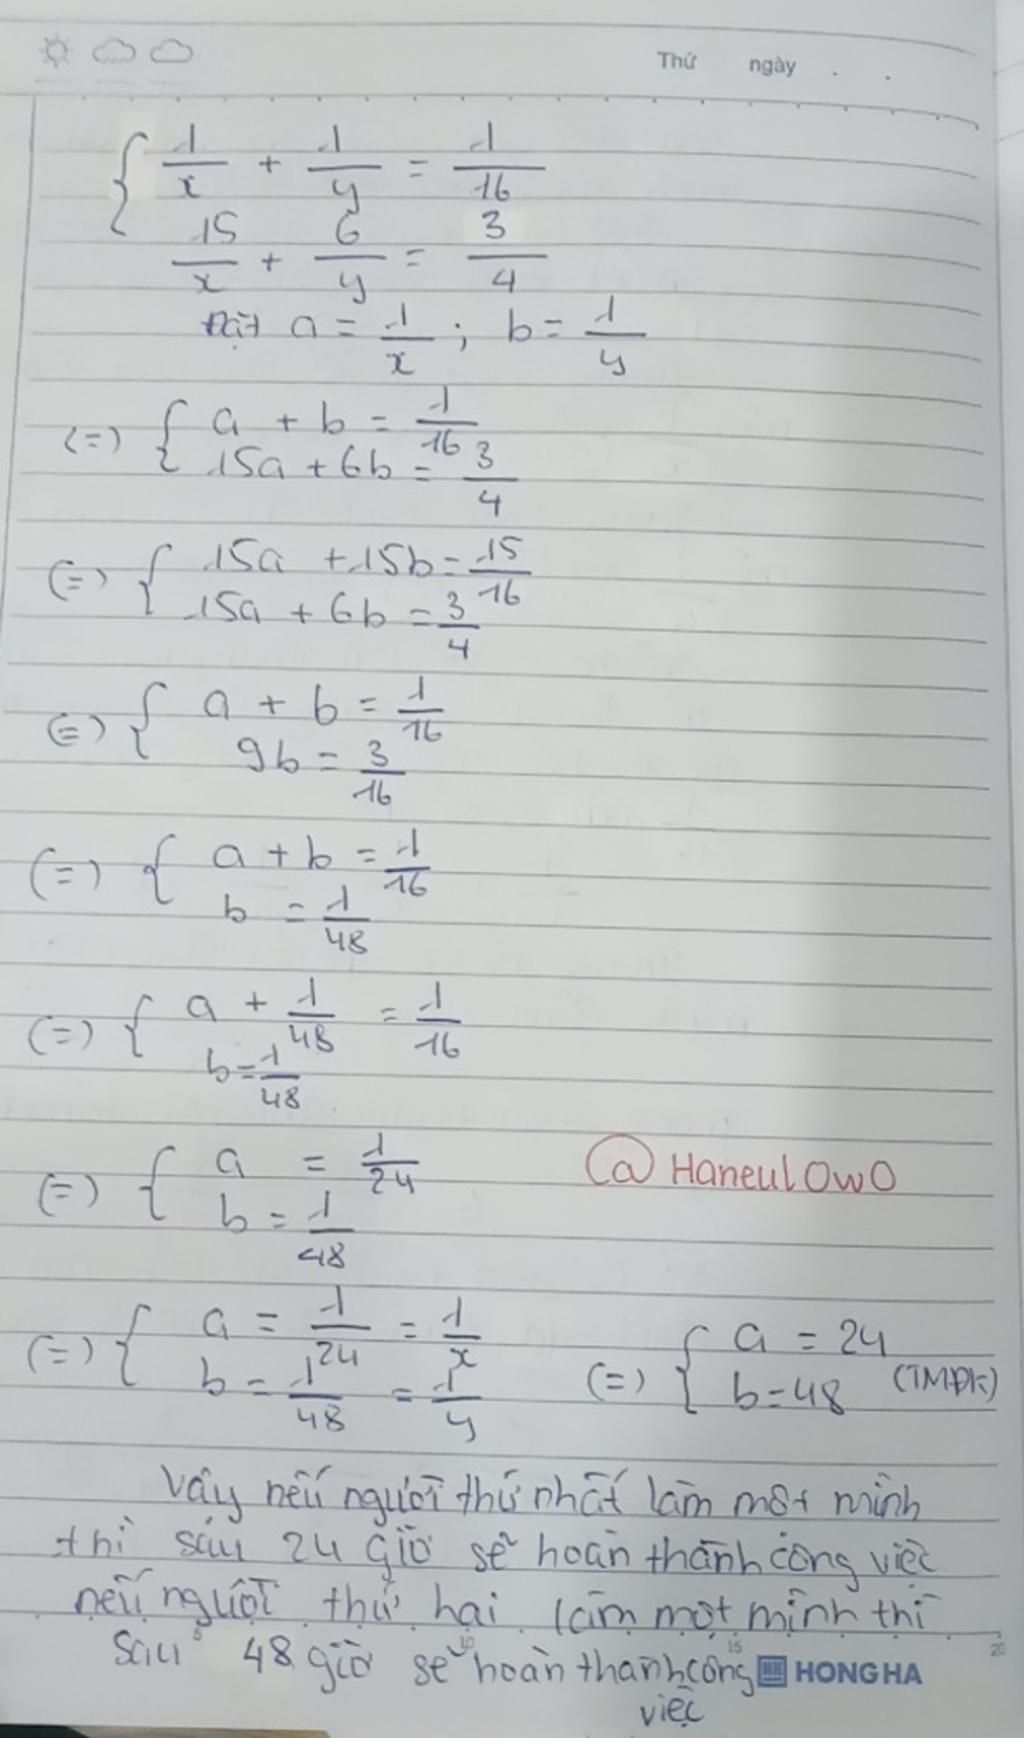 Thứ ngày . .
{ 1/x + 1/y = 1/16
15/x + 6/y = 3/4
Đặt a = 1/x ; b = 1/y
(=) { a + b = 1/16
15a + 6b = 3/4
(=) { 15a + 15b = 15/16
15a + 6b = 3/4
(=) { a + b = 1/16
9b = 3/16
(=) { a + b = 1/16
b = 1/48
(=) { a + 1/48 = 1/16
b = 1/48
(=) { a = 1/24
b = 1/48
@ Haneul OwO
(=) { a = 1/24 = 1/x
b = 1/48 = 1/y
(=) { a = 24
b = 48 (TMĐK)
Vậy nếu người thứ nhất làm một mình
thì sau 24 giờ sẽ hoàn thành công việc
nếu người thứ hai làm một mình thì
sau 48 giờ sẽ hoàn thành công
việc
10 15 20
HONG HA